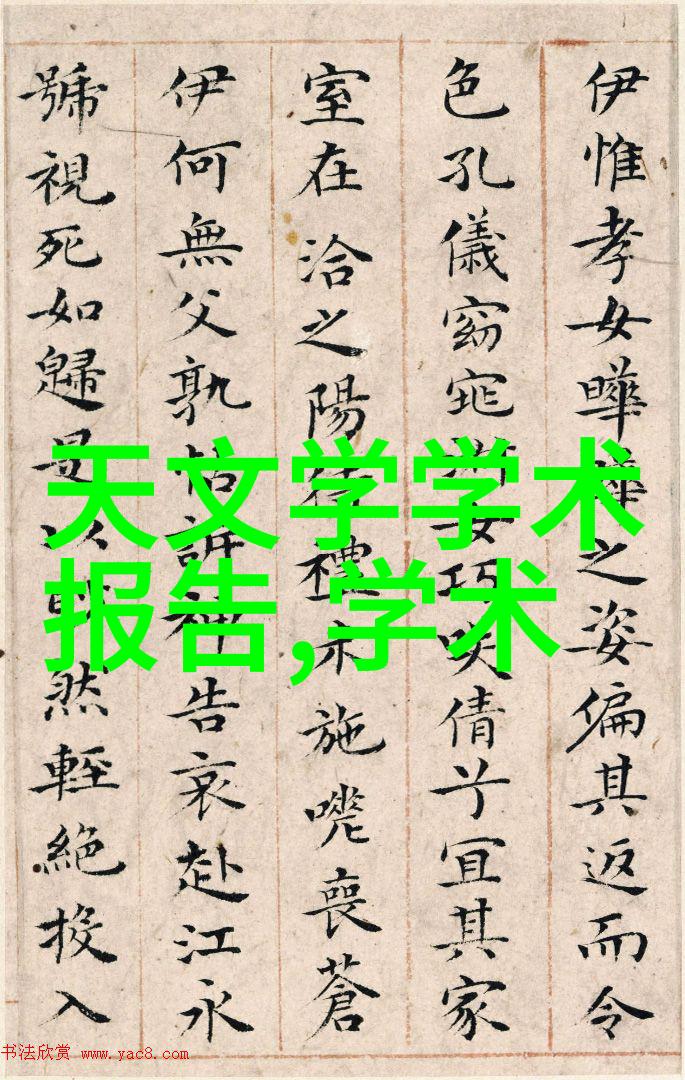 伊惟孝女曄曄之姿偏其返而令
色孔儀窈窕淑女巧咲倩兮宜其家
室在洽之陽待禮未施嗟喪蒼
伊何無父孰怙訴神告哀赴江永
號視死如歸是以眇然輕絕投入
天文学学术
报告,学术
书法欣赏 www.yac8.com